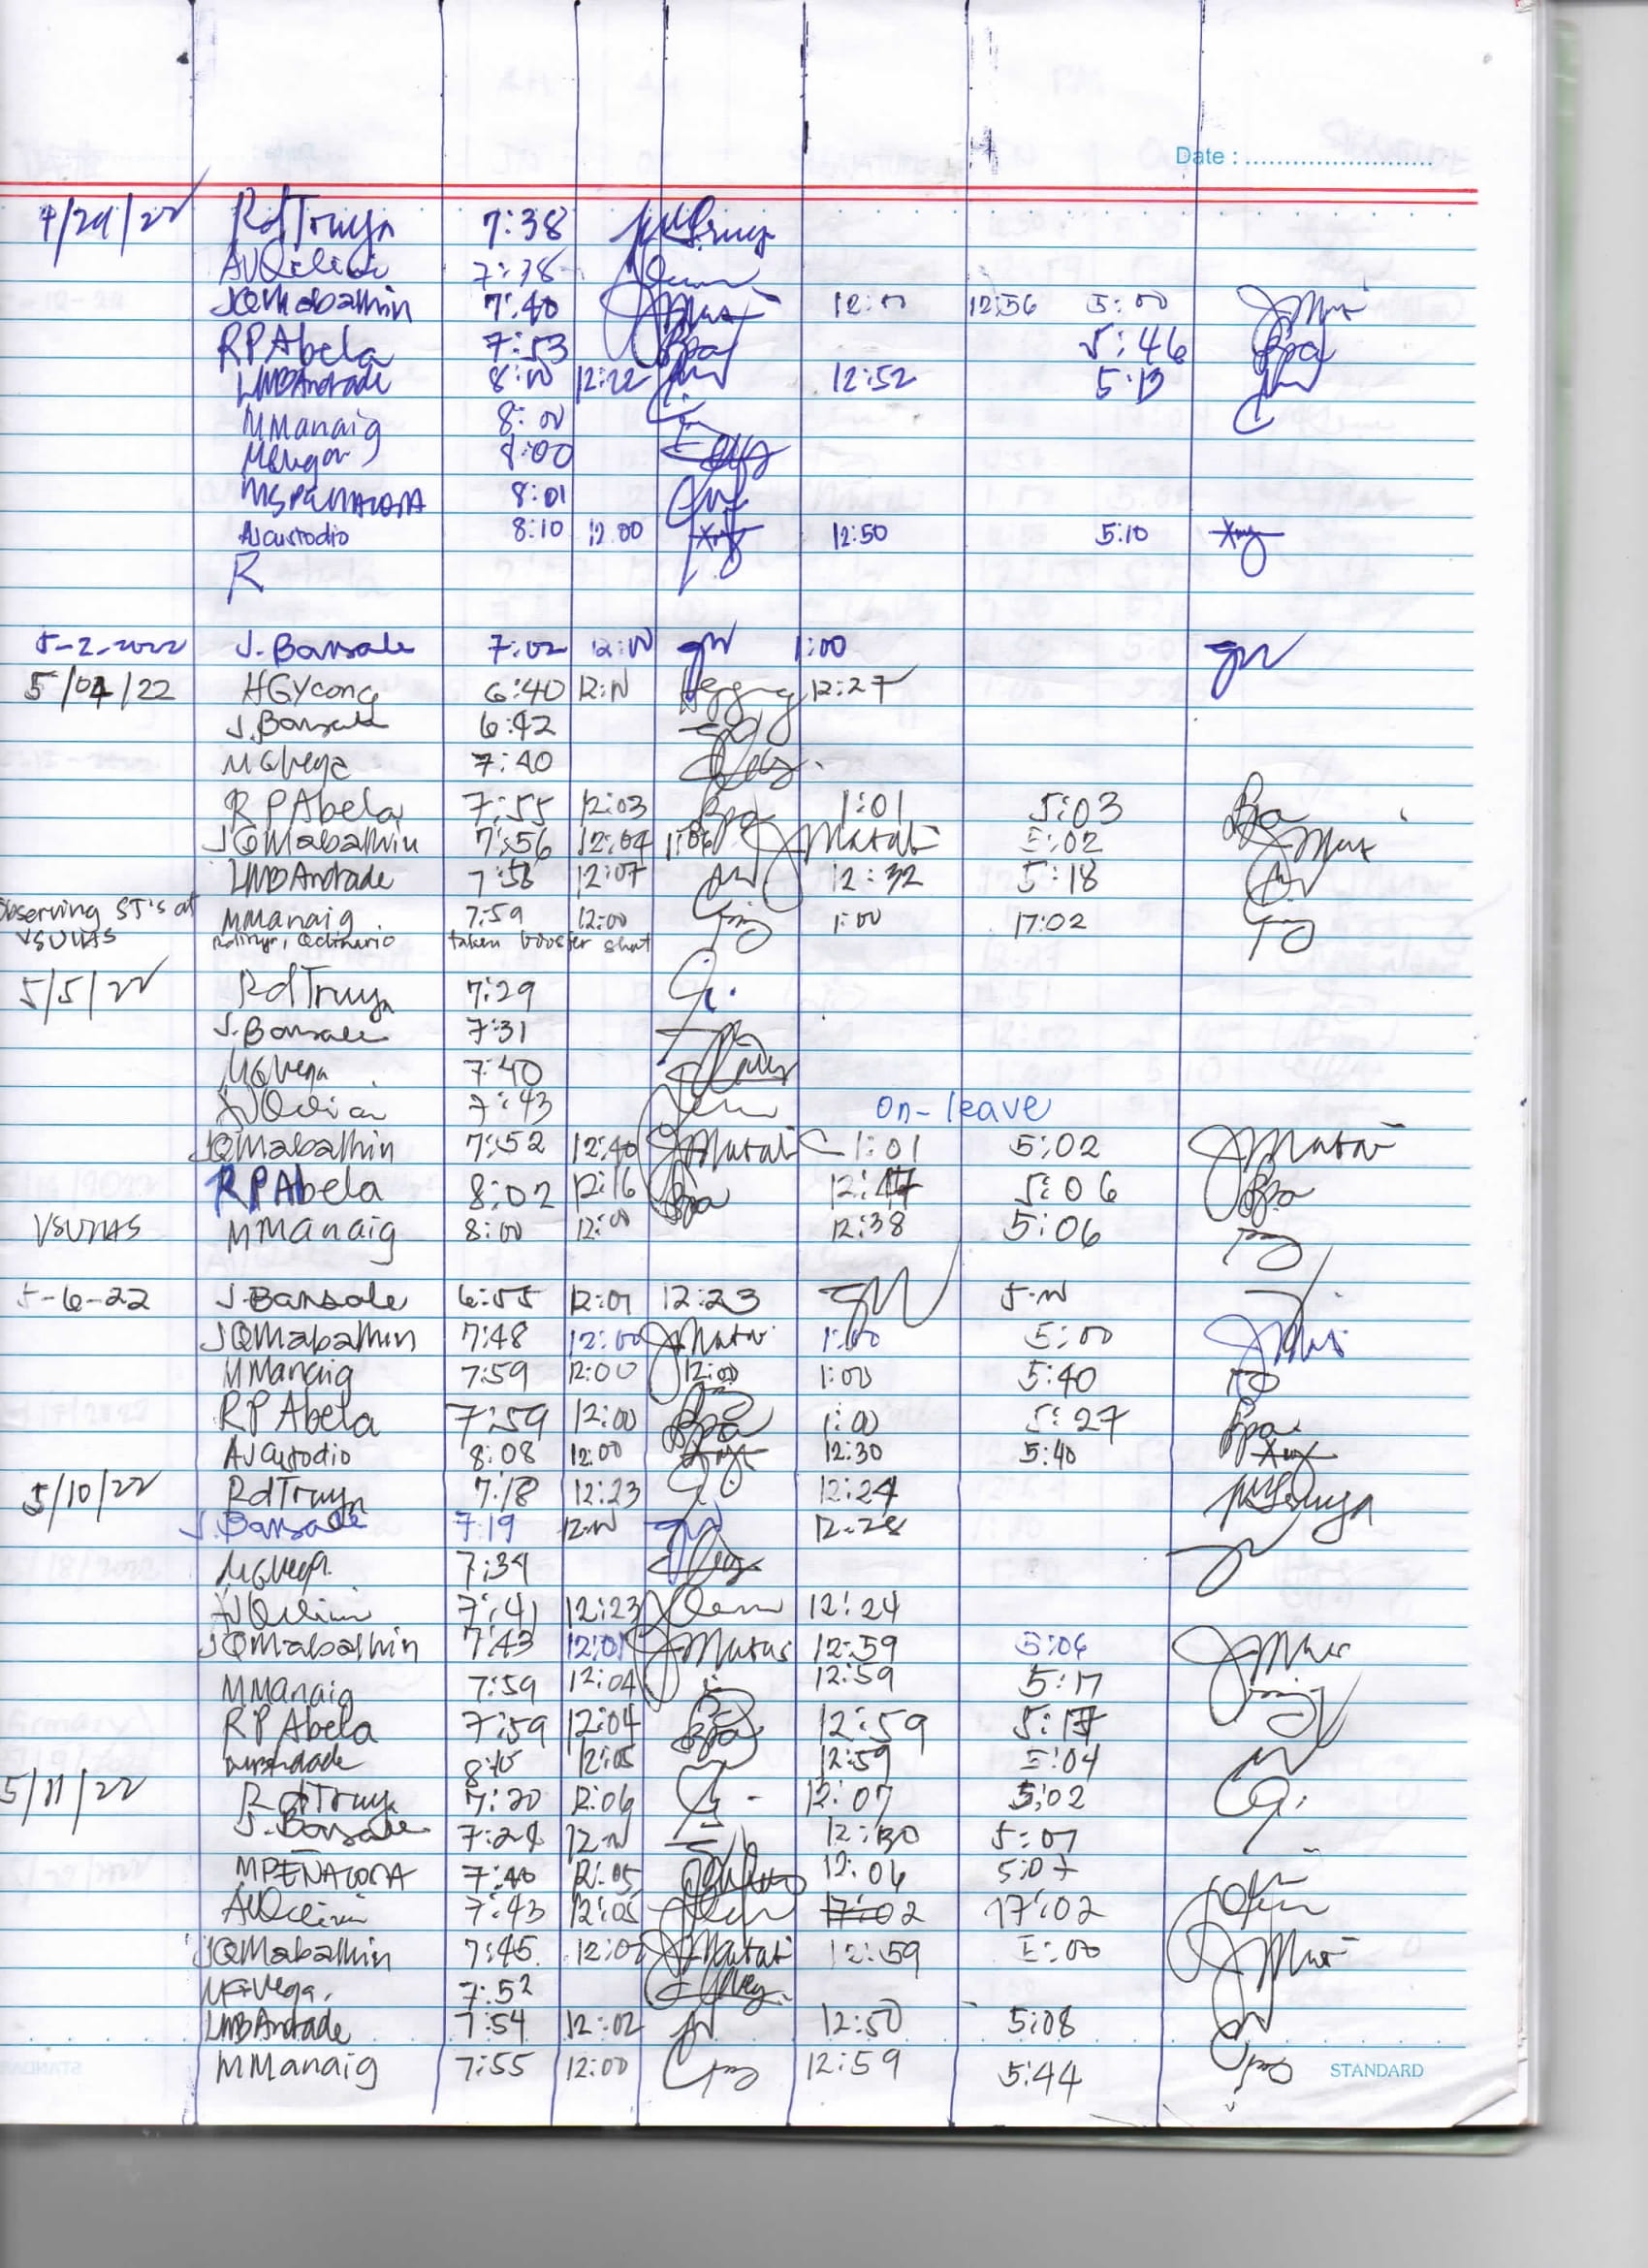 Date : ..............................
4/29/22 RdTruya 7:38
7:38
JQMabalhin 7:40 12:00 12:56 5:00
RPAbela 7:53 Bpa 5:46 Bpa
LMBAndrade 8:00 12:22 12:52 5:13
MManaig 8:00
8:00
8:01
AJCustodio 8:10 12:00 12:50 5:10
R
5-2-2022 J. Bansale 7:02 12:00 1:00
5/04/22 HGYcong 6:40 12:N 12:27
J. Bansale 6:42
MGVega 7:40
RPAbela 7:55 12:03 Bpa 1:01 5:03 Bpa
JQMabalhin 7:56 12:04 1:06 5:02
LMBAndrade 7:58 12:07 12:32 5:18
Observing ST's at MManaig 7:59 12:00 1:00 17:02
VSUIHS taken booster shot
5/5/22 RdTruya 7:29
J. Bansale 7:31
MGVega 7:40
7:43 on-leave
JQMabalhin 7:52 12:40 1:01 5:02
RPAbela 8:02 12:16 Bpa 12:47 5:06 Bpa
VSUIHS MManaig 8:00 12:00 12:38 5:06
5-6-22 J. Bansale 6:55 12:01 12:23 5:00
JQMabalhin 7:48 12:00 1:00 5:00
MManaig 7:59 12:00 12:00 1:00 5:40
RPAbela 7:59 12:00 Bpa 1:00 5:27 Bpa
AJCustodio 8:08 12:00 12:30 5:40
5/10/22 RdTruya 7:18 12:23 12:24
J. Bansale 7:19 12:00 12:28
MGVega 7:34
7:41 12:23 12:24
JQMabalhin 7:43 12:01 12:59 5:06
MManaig 7:59 12:04 12:59 5:17
RPAbela 7:59 12:04 Bpa 12:59 5:17
LMBAndrade 12:05 12:59 5:04
5/11/22 RdTruya 7:20 12:06 12:07 5:02
J. Bansale 12:00 12:30 5:07
MPEÑALOSA 7:40 12:05 12:06 5:07
7:43 12:05 17:02 17:02
JQMabalhin 7:45 12:02 12:59 5:00
MGVega 7:52
LMBAndrade 7:54 12:02 12:50 5:08
MManaig 7:55 12:00 12:59 5:44
STANDARD